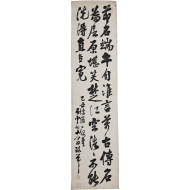 節名端午自誰言萬古傳名
為屈原堪笑楚江空渺渺不能
洗得直臣冤